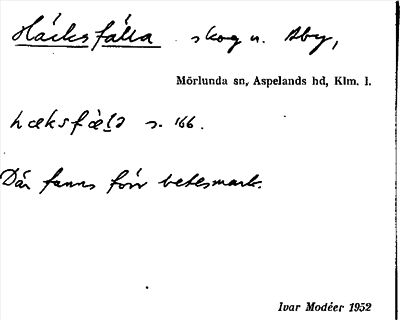 Häcksfälla skog u. Åby,
Mörlunda sn, Aspelands hd, Klm. l.
hæksfæla s. 166.
Där fanns förr betesmark.
Ivar Modéer 1952